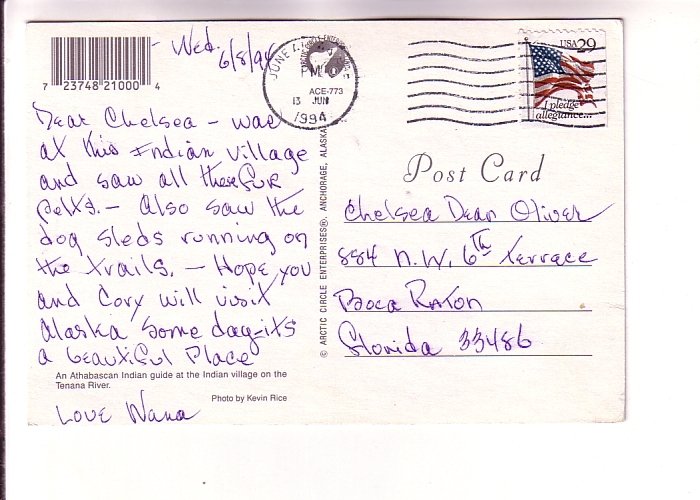 - Wed.
6/8/94
7 23748 21000 4
JUNE
PM
ACE-773
13 JUN
1994
USA 29
I pledge
allegiance...
Dear Chelsea - was
at this Indian village
and saw all these fur
pelts. - Also saw the
dog sleds running on
the trails. - Hope you
and Cory will visit
Alaska some day-its
a beautiful Place
An Athabascan Indian guide at the Indian village on the
Tenana River.
Photo by Kevin Rice
Love Nana
© ARCTIC CIRCLE ENTERPRISES®, ANCHORAGE, ALASKA
Post Card
Chelsea Dean Oliver
884 N.W. 6th Terrace
Boca Raton
Florida 33486